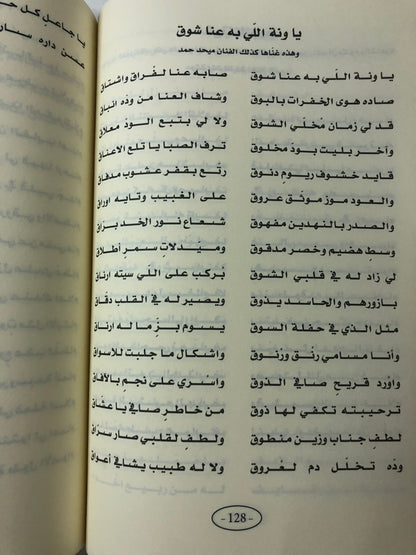 يا جاعلٍ كل
عسن داره
يا ونة اللّي به عنا شوق
وهذه غنّاها كذلك الفنان ميحد حمد
يا ونة اللي به عنا شوق صابه عنا لفراق واشتاق
صاده هوى الخفرات بالبوق وشاف العنا من وده انباق
قد لي زمان مْخَلّي الشوق ولا لي بتبع الود معلاق
وآخر بليت بودْ مخلوق ترف الصبا يا تلع الأعناق
قايد خشوف ريوم دنّوق رتّع بقفر عشوب مدفاق
والعود موز موثق عروق على الغبيب وتايه اوراق
والصدر بالنهدين مفهوق شعاع نور الخد برّاق
وسطٍ هضيم وخصر مدقوق ومْيَدّلاتٍ سمرٍ أطلاق
لي زاد له في قلبي الشوق بركب على اللي سيته ارناق
بازورهم والحاسد يذوق ويصير له في القلب دقّاق
مثل الذي في حفلة السوق يسوم بزٍّ ما له ارناق
وأنا مسامي رنق ورنوق واشكال ما جلبت للاسواق
واوْرد قريحٍ صافي الذوق واسْري على نجمٍ بالآفاق
ترحيبته تكفي لها ذوق من خاطرٍ صافي يا عشّاق
لطفِ جناب وزين منطوق ولطفٍ لقلبي صار سرّاق
ودّه تخلّل دم لعروق ولا له طبيب يشافي أعواق
- 128 -